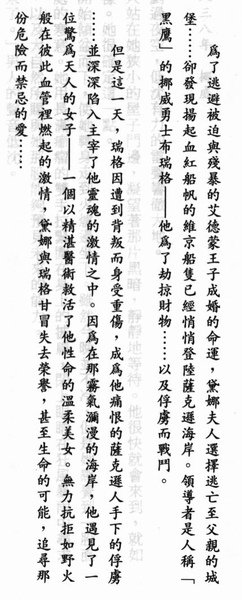 為了逃避被迫與殘暴的艾德蒙王子成婚的命運，黛娜夫人選擇逃亡至父親的城
堡……卻發現揚起血紅船帆的維京船隻已經悄悄登陸薩克遜海岸。領導者是人稱「
黑鷹」的挪威勇士布瑞格——他為了劫掠財物……以及俘虜而戰鬥。
但是這一天，瑞格因遭到背叛而身受重傷，成為他痛恨的薩克遜人手下的俘虜
……並深深陷入主宰了他靈魂的激情之中。因為在那霧氣瀰漫的海岸，他遇見了一
位驚為天人的女子——一個以精湛醫術救活了他性命的溫柔美女。無力抗拒如野火
般在彼此血管裡燃起的激情，黛娜與瑞格甘冒失去榮譽，甚至生命的可能，追尋那
份危險而禁忌的愛……